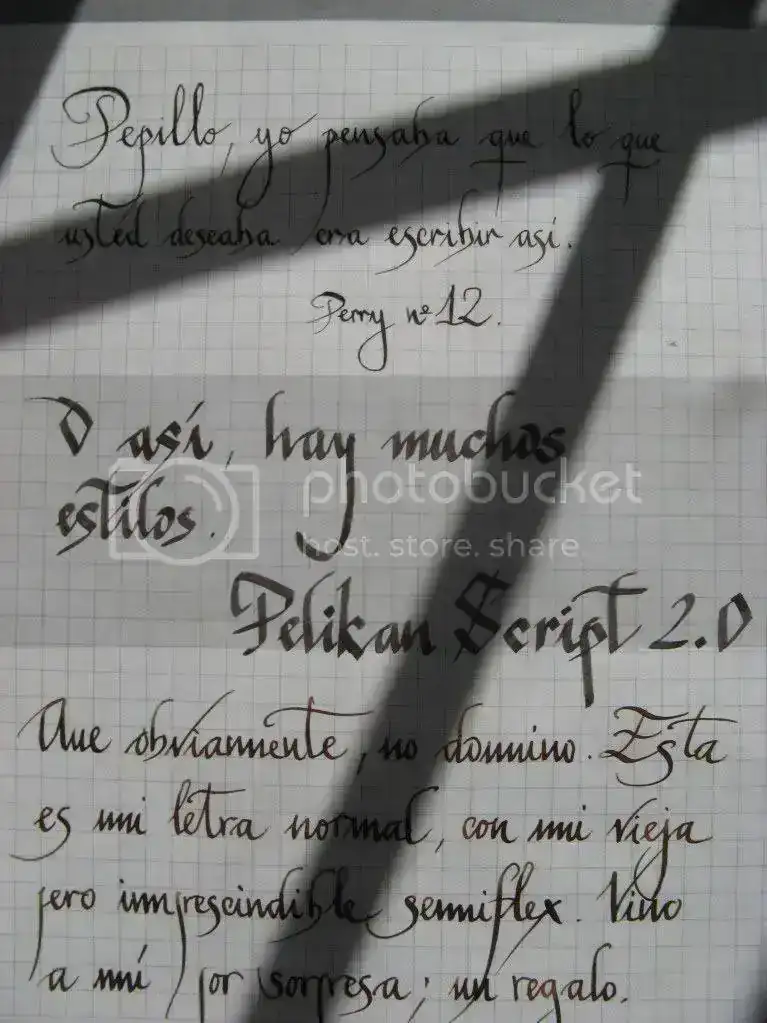 Pepillo, yo pensaba que lo que
usted deseaba era escribir así.
Perry nº 12.
O así, hay muchos
estilos.
photobucket
host. store. share
Pelikan Script 2.0
Que obviamente, no domino. Esta
es mi letra normal, con mi vieja
pero imprescindible semiflex. Vino
a mí por sorpresa; un regalo.